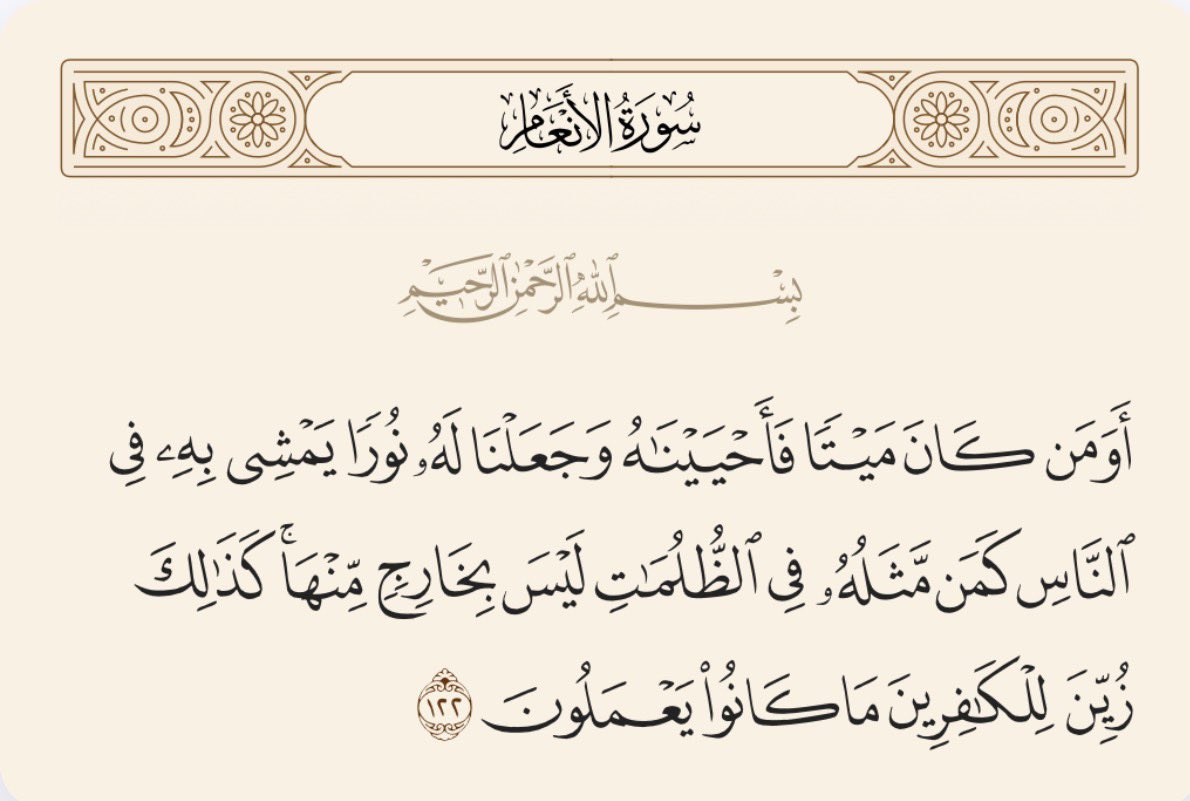 سُورَةُ الأَنْعَامِ
بِسْمِ ٱللَّهِ ٱلرَّحْمَٰنِ ٱلرَّحِيمِ
أَوَمَن كَانَ مَيْتًا فَأَحْيَيْنَٰهُ وَجَعَلْنَا لَهُۥ نُورًا يَمْشِى بِهِۦ فِى
ٱلنَّاسِ كَمَن مَّثَلُهُۥ فِى ٱلظُّلُمَٰتِ لَيْسَ بِخَارِجٍ مِّنْهَا ۚ كَذَٰلِكَ
زُيِّنَ لِلْكَٰفِرِينَ مَا كَانُوا۟ يَعْمَلُونَ ١٢٢